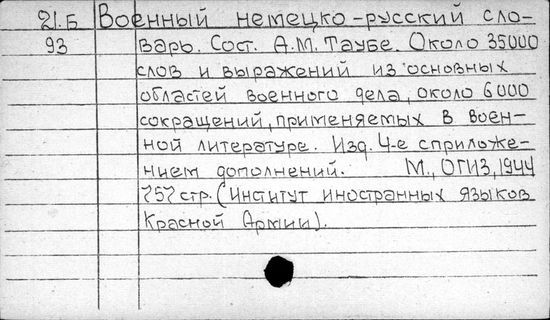 21.Б Военный немецко-русский сло-
93 варь. Сост. А.М. Таубе. Около 35000
слов и выражений из основных
областей военного дела, около 6000
сокращений, применяемых в воен-
ной литературе. Изд. 4-е с приложе-
нием дополнений. М., ОГИЗ, 1944
757 стр. (Институт иностранных языков
Красной Армии).